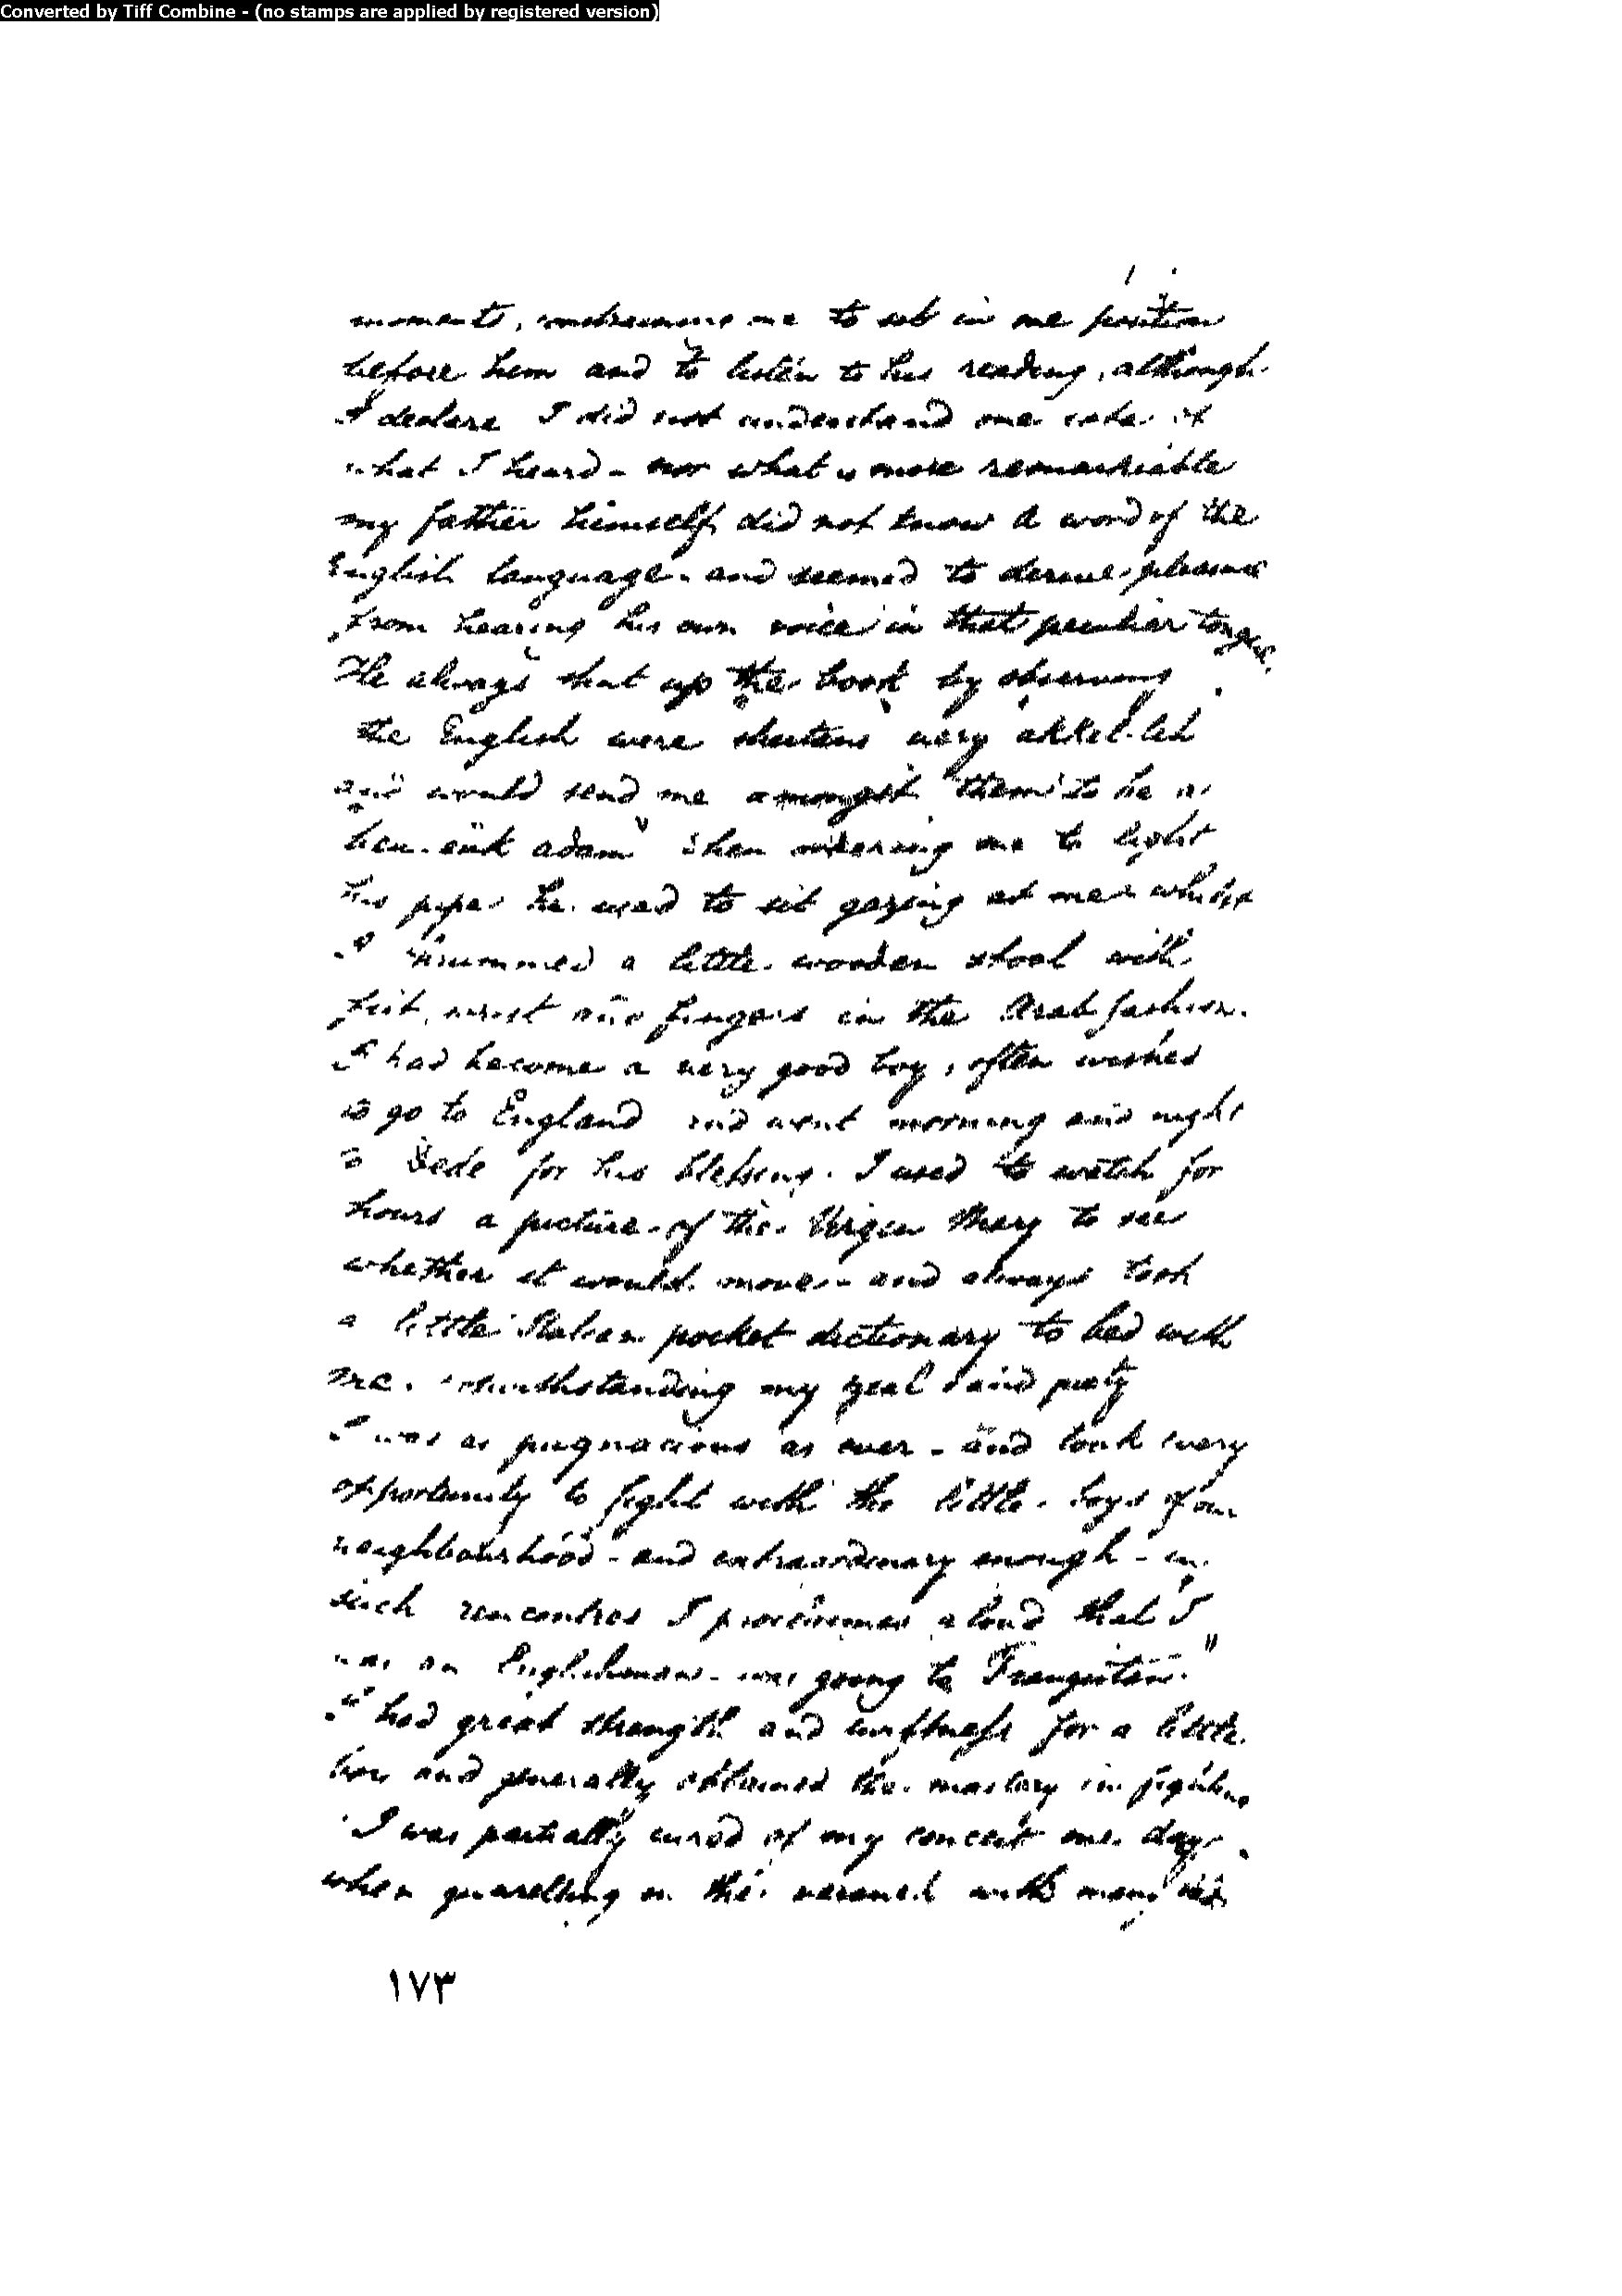 Converted by Tiff Combine - (no stamps are applied by registered version)
moments, me to sit in one position
before him and to listen to his reading, although
I declare I did not understand one of
what I heard - nor what is more remarkable
my father himself did not know a word of the
English language - and seemed to derive pleasure
from hearing his own voice in that peculiar tongue.
He always shut up the book by observing
the English were very
and would send me amongst them to be a
adam" then ordering me to light
his pipe he used to sit gazing at me whilst
I drummed a little wooden stool with
fist, wrist and fingers in the Arab fashion.
I had become a very good boy, often wished
to go to England and went morning and night
to Dede for his blessing. I used to watch for
hours a picture of the Virgin Mary to see
whether it would move - and always took
a little Italian pocket dictionary to bed with
me. my zeal and piety
I was as pugnacious as ever - and took every
opportunity to fight with the little boys of our
neighbourhood - and extraordinary enough - in
such rencontres I proclaimed aloud that I
was an Englishman - was going to Franguistan."
I had great strength and swiftness for a little
boy and generally obtained the mastery in fighting
I was partially cured of my conceit one day
when quarelling on the with
١٧٣